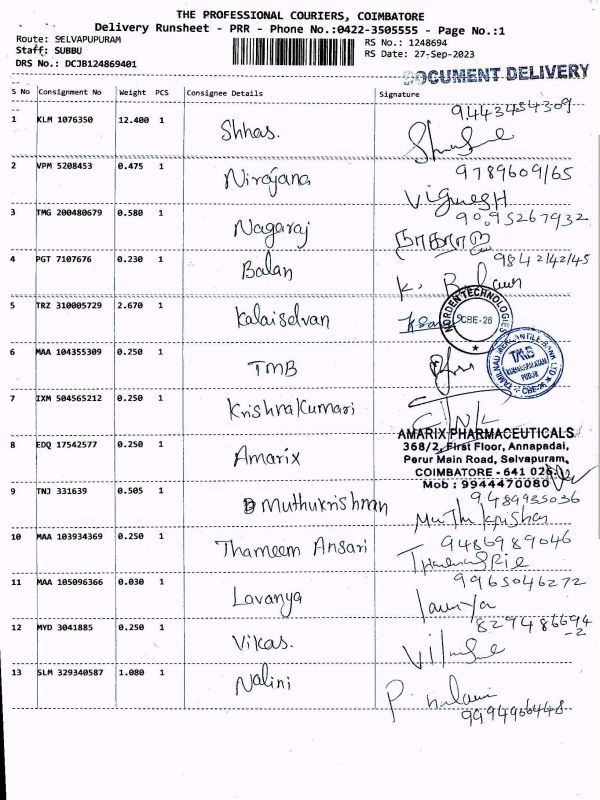 THE PROFESSIONAL COURIERS, COIMBATORE
Delivery Runsheet - PRR - Phone No.:0422-3505555 - Page No.:1
Route: SELVAPUPURAM
Staff: SUBBU
DRS No.: DCJB124869401
RS No.: 1248694
RS Date: 27-Sep-2023
DOCUMENT DELIVERY
S No Consignment No Weight PCS Consignee Details Signature
9443454309
1 KLM 1076350 12.400 1 Shhas.
9789609165
2 VPM 5208453 0.475 1 Nirajana Vignesh
9095267932
3 TMG 200480679 0.580 1 Nagaraj நாகராஜ
9842142145
4 PGT 7107676 0.230 1 Balan K. Balan
5 TRZ 310005729 2.670 1 Kalaiselvan
NORDEN TECHNOLOGIES CBE-26
6 MAA 104355309 0.250 1 TMB
TAMILNAD MERCANTILE BANK LTD TMB CBE-26
7 IXM 504565212 0.250 1 Krishnakumari
8 EDQ 17542577 0.250 1 Amarix
AMARIX PHARMACEUTICALS
368/2, First Floor, Annapadai,
Perur Main Road, Selvapuram,
COIMBATORE - 641 026.
Mob : 9944470080
9489935036
9 TNJ 331639 0.505 1 Muthukrishnan Muthukrishan
9486989046
10 MAA 103934369 0.250 1 Thameem Ansari
9965046272
11 MAA 105096366 0.030 1 Lavanya
829486694
-2
12 MYD 3041885 0.250 1 Vikas.
13 SLM 329340587 1.080 1 Nalini
9994966448